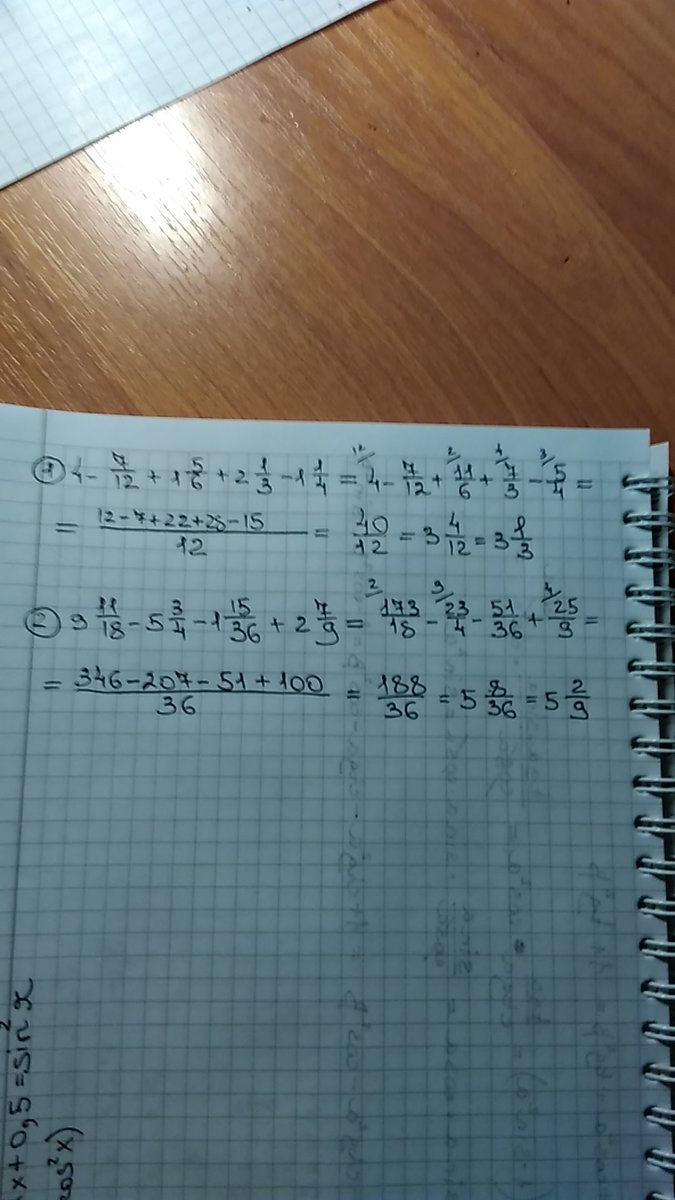 ① 4 - 7/12 + 1 5/6 + 2 1/3 - 1 1/4 = 12/ 4 - 7/12 + 2/ 11/6 + 4/ 7/3 - 3/ 5/4 =
= (12-7+22+28-15)/12 = 40/12 = 3 4/12 = 3 1/3
② 9 11/18 - 5 3/4 - 1 15/36 + 2 7/9 = 2/ 173/18 - 9/ 23/4 - 51/36 + 4/ 25/9 =
= (346 - 207 - 51 + 100)/36 = 188/36 = 5 8/36 = 5 2/9
x + 0,5 = sin² x
cos² x)